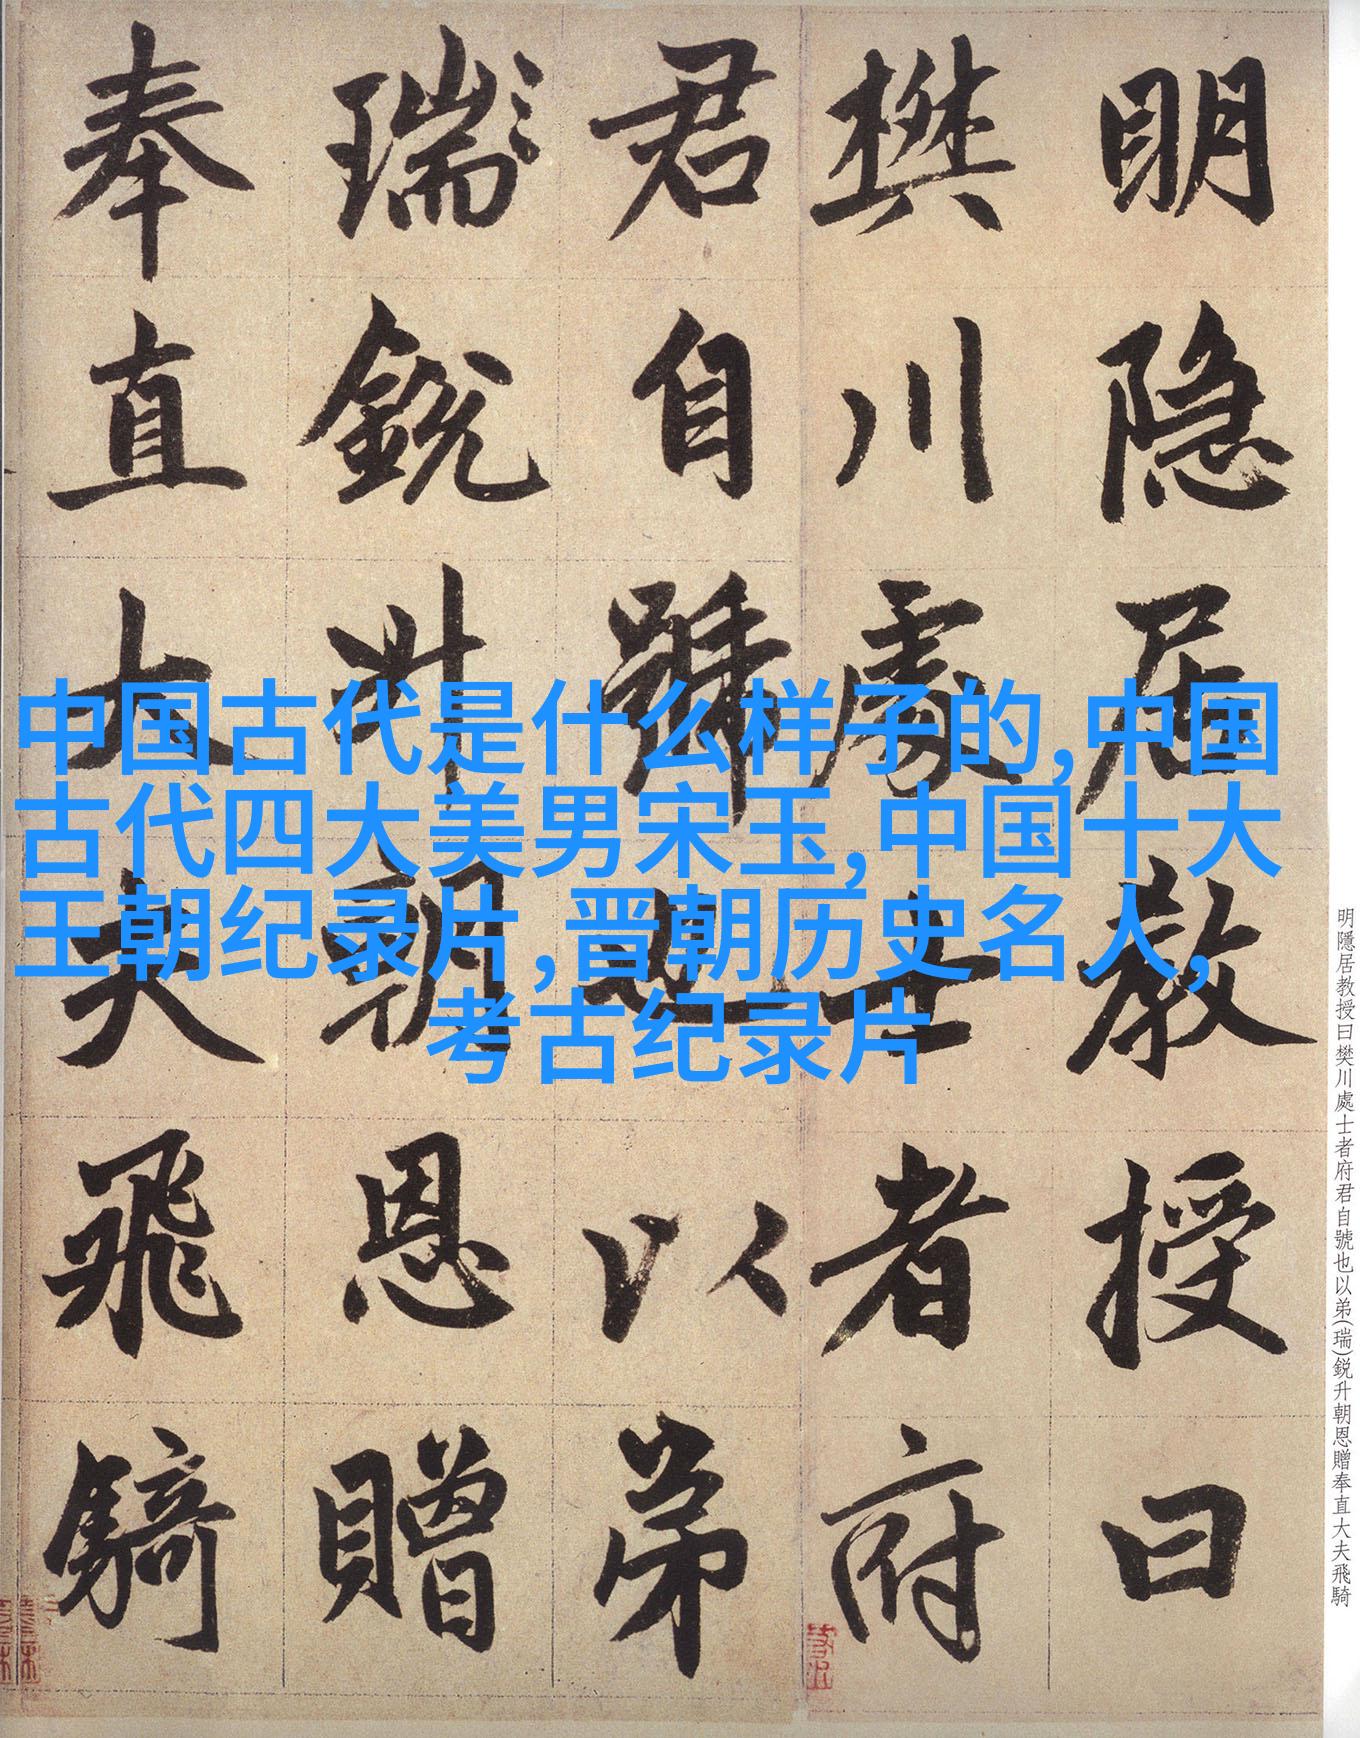 明隐居教授曰
樊川處士者府
君自號也以弟
瑞銳升朝恩贈
奉直大夫飛騎
中国古代是什么样子的,中国
古代四大美男宋玉,中国十大
王朝纪录片,晋朝历史名人,
考古纪录片
明隱居教授曰樊川處士者府君自號也以弟(瑞)鋭升朝恩贈奉直大夫飛騎